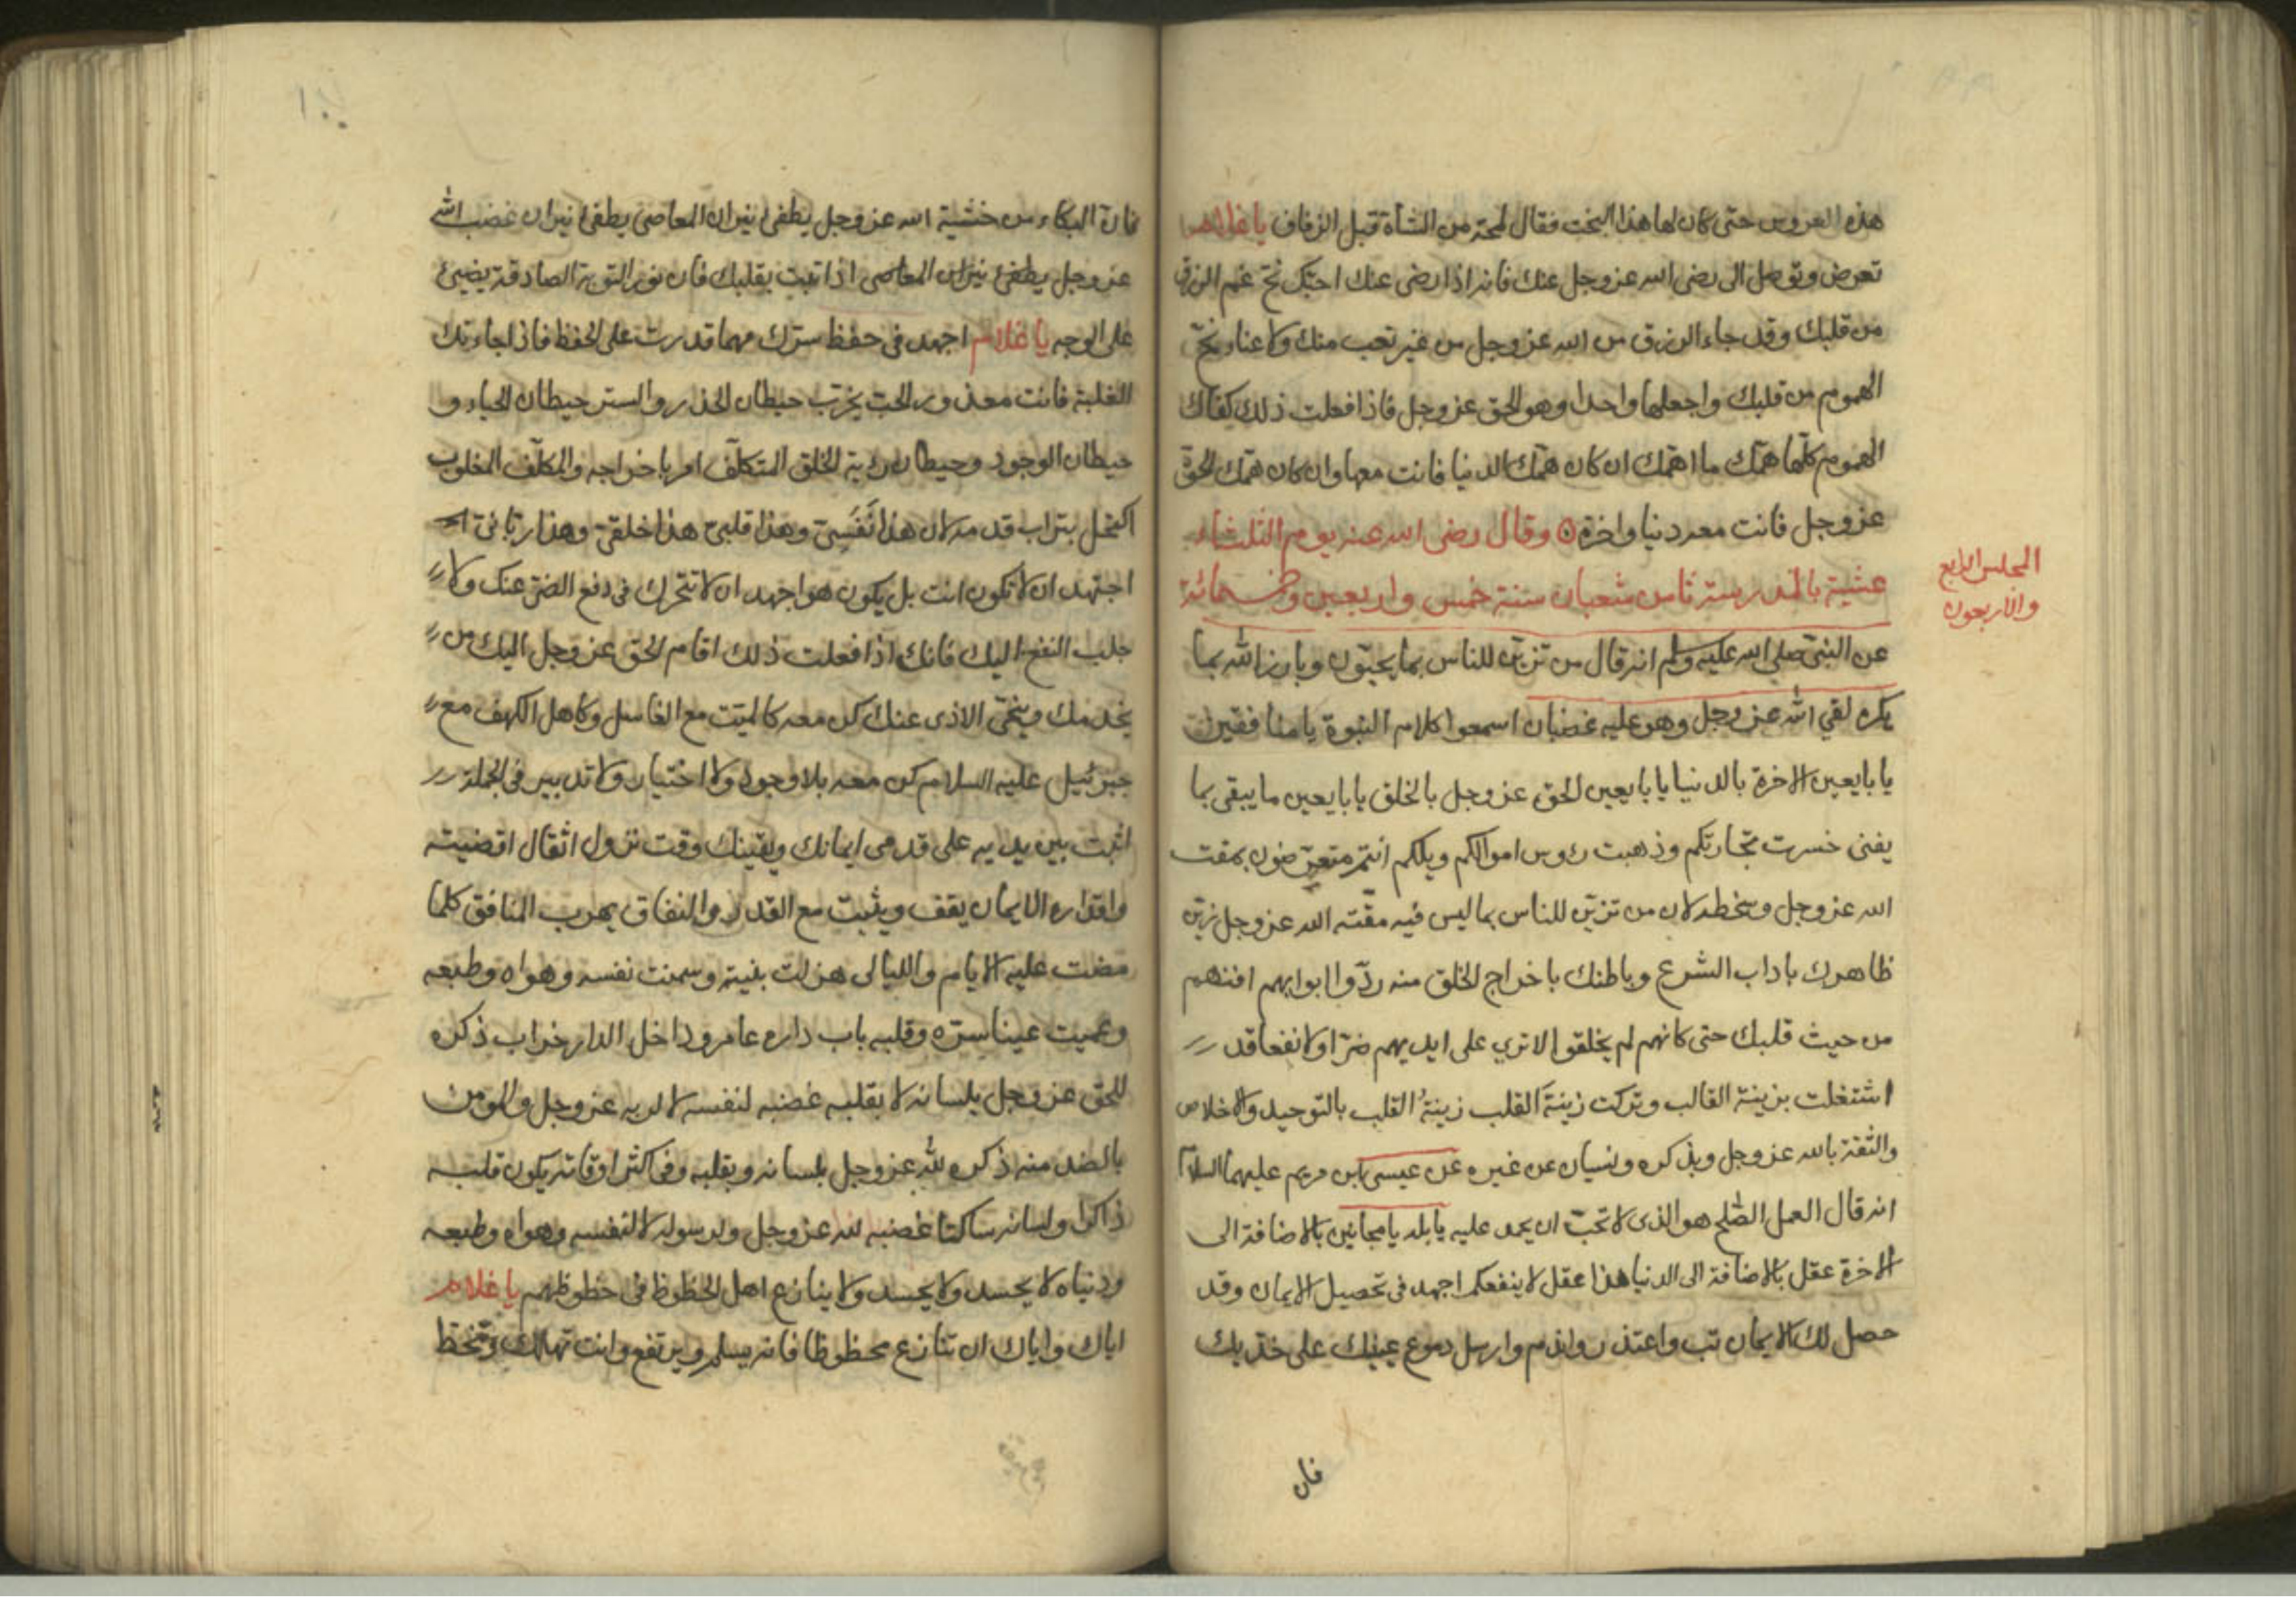 هذه العروس حتى كان لها هذا البخت فقال لمحة من الشأة قبل الزفاف يا غلام
تعرض وتوصل الى رضى الله عز وجل عنك فانه اذا رضى عنك احبّك نحّ غم الرزق
من قلبك وقد جاء الرزق من الله عز وجل من غير تعب منك ولا عناء نحّ
الهموم من قلبك واجعلها واحدا وهو الحق عز وجل فاذا فعلت ذلك كفاك
الهموم كلّها همّك ما اهمّك ان كان همّك الدنيا فانت معها وان كان همّك الحق
عز وجل فانت معه دنيا واخرة وقال رضى الله عنه يوم الثلثاء
عشية بالمدرسة ثامن شعبان سنة خمس واربعين وخمسمائة
المجلس الرابع
والاربعون
عن النبيّ صلى الله عليه وسلم انه قال من تزيّن للناس بما يحبّون وبارز الله بما
يكره لقي الله عز وجل وهو عليه غضبان اسمعوا كلام النبوة يا منافقين
يا بايعين الاخرة بالدنيا يا بايعين الحق عز وجل بالخلق يا بايعين ما يبقى بما
يفنى خسرت تجارتكم وذهبت رؤس اموالكم ويلكم انتم متعرّضون بمقت
الله عز وجل وسخطه لان من تزيّن للناس بما ليس فيه مقته الله عز وجل زيّن
ظاهرك باداب الشرع وباطنك باخراج الخلق منه ردّوا ابوابهم افنهم
من حيث قلبك حتى كانهم لم يخلقوا لا ترى على ايديهم ضرّا ولا نفعا قد
اشتغلت بزينة القالب وتركت زينةَ القلب زينةُ القلب بالتوحيد والاخلاص
والثقة بالله عز وجل وبذكره ونسيان عن غيره عن عيسى ابن مريم عليهما السلام
انه قال العمل الصّلح هو الذى لا تحبّ ان يحمد عليه يا بله يا مجانين بالاضافة الى
الاخرة عقل بالاضافة الى الدنيا هذا عقل لا ينفعكم اجهد فى تحصيل الايمان وقد
حصل لك الايمان تب واعتذر واندم وارسل دموع عينك على خدّيك
فان
فان البكاء من خشية الله عز وجل يطفئ نيران المعاصى يطفئ نيران غضب الله
عز وجل يطفئ نيران المعاصى اذا تبت بقلبك فان نور التوبة الصادقة يضيئ
على الوجه يا غلام اجهد فى حفظ سرّك مهما قدرت على الحفظ فاذا جاءتك
الغلبة فانت معذور الحب يخرّب حيطان الخدر والستر حيطان الحياء و
حيطان الوجود وحيطان رؤية الخلق المتكلّف امر باخراجه والمكلّف المغلوب
اكتحل بتراب قدمه لان هذا نَفَسيّ وهذا قلبيّ هذا خلقيّ وهذا ربّانىّ
اجتهد ان لا تكون انت بل يكون هو اجهد ان لا تتحرك فى دفع الضرّ عنك ولا
جلب النفع اليك فانك اذا فعلت ذلك اقام الحق عز وجل اليك من
يخدمك وينحّى الاذى عنك كن معه كالميّت مع الغاسل وكاهل الكهف مع
جبرئيل عليه السلام كن معه بلا وجود ولا اختيار ولا تدبير فى الجملة
اثبت بين يديه على قدمى ايمانك ويقينك وقت نزول اثقال اقضيته
واقداره الايمان يقف ويثبت مع القدر والنفاق يهرب المنافق كلما
مضت عليه الايام والليالى هزلت بنيته وسمنت نفسه وهواه وطبعه
وعميت عينا سرّه وقلبه باب داره عامر وداخل الدار خراب ذكره
للحق عز وجل بلسانه لا بقلبه غضبه لنفسه لا لربه عز وجل والمومن
بالضد منه ذكره لله عز وجل بلسانه وبقلبه وفى اكثر اوقاته يكون قلبه
ذاكرا ولسانه ساكتا غضبه لله عز وجل ولرسوله لا لنفسه وهواه وطبعه
ودنياه لا يحسد ولا يحسد ولا ينازع اهل الحظوظ فى حظوظهم يا غلام
اياك واياك ان تنازع محظوظا فانه يسلم ويرتفع وانت تهلك وتنحط